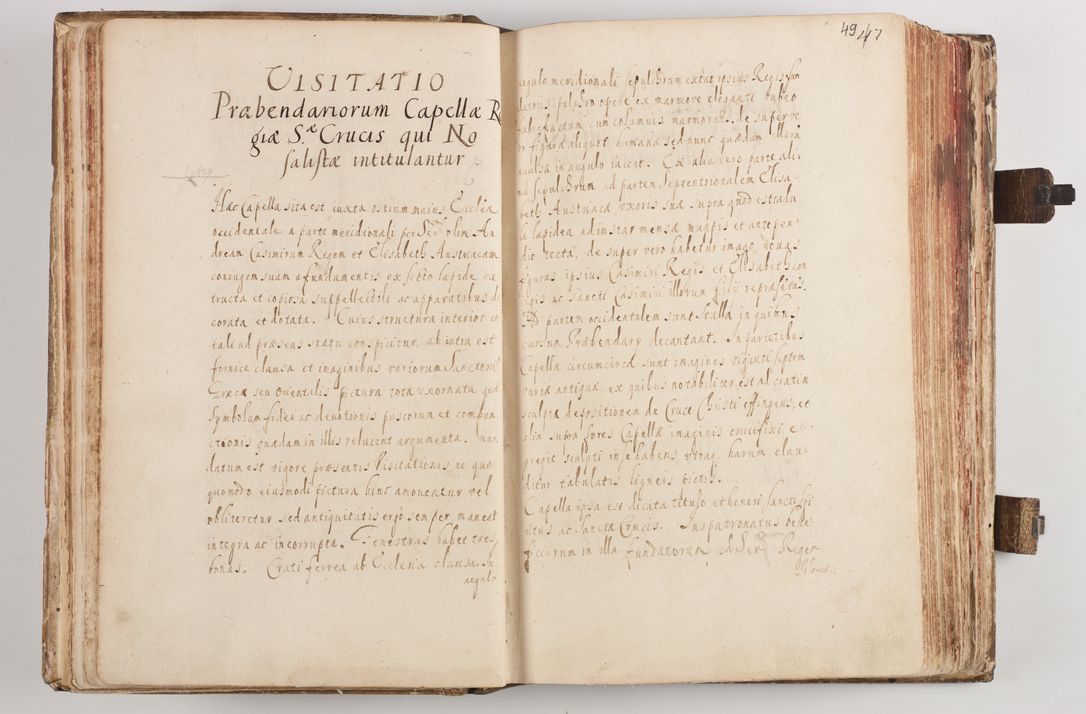 VISITATIO
Præbendariorum Capellæ Re
giæ S.æ Crucis qui No
salistæ intitulantur
Hæc Capella sita est iuxta ostium maius Ecclæ
occidentale a parte meridionali per Ser. olim An
dream Casimirum Regem et Elisabeth Austriacam
coniugem suam a fundamentis ex secto lapide ex
tructa et copiosa suppellectili ac apparatibus de
corata et dotata. Cuius structura interior in
tali ad præsens statu conspicitur. ab intra est
fornice clausa et imaginibus variorum Sanctorū
Græca seu Orientalis pictura tota exornata quæ
Symbolum fidei ac deuotionis priscorum et compun
ctionis quædam in illis relucent argumenta. Man
datum est vigore præsentis Visitationis ne quo
quomodo eiusmodi pictura hinc amoueatur vel
obliteretur sed antiquitatis ergò semper maneat
integra ac incorrupta. Fenestras habet tres
bonas. Crati ferrea ab Ecclesia clausa. In
angulo
49 47
angulo meridionali sepulchrum extat ipsius Regis fun
datoris, pulchro opere ex marmore eleganti rubeo
fabrefactum cum columnis marmoreis, de superre
figuræ aliquot humanæ sed nunc quædam illarū
auulsa in angulo iacent. Ex alia vero parte ali
ud sepulchrum ad partem Septentrionalem Elisa
beth Austriaca vxoris suæ supra quod est tabu
la lapidea ad instar mensæ mappis et antepen
dio tecta, de super vero habetur imago nouas
figuras ipsius Casimiri Regis et Elisabeth con
iugis ac Sancti Casimiri illorum filij repræsētās.
Ad partem occidentalem sunt stalla in quibus
cursum Præbendarij decantant. In parietibus
Capellæ circumcirca sunt imagines viginti septem
variæ antiquæ ex quibus notabiliter est al ciatim
sculpta depositionem de Cruce Christi effingens, et
alia supra fores Capellæ imaginis crucifixi e
gregie sculpti in se habens vtraq. harum clau
ditur tabulatis ligneis pictis.
Capella ipsa est dicata titulo et honori Sancti Spi
ritus ac Sanctæ Crucis. Ius patronatus bene
ficiorum in illa fundatorum ad Ser. Regem
Poloniæ